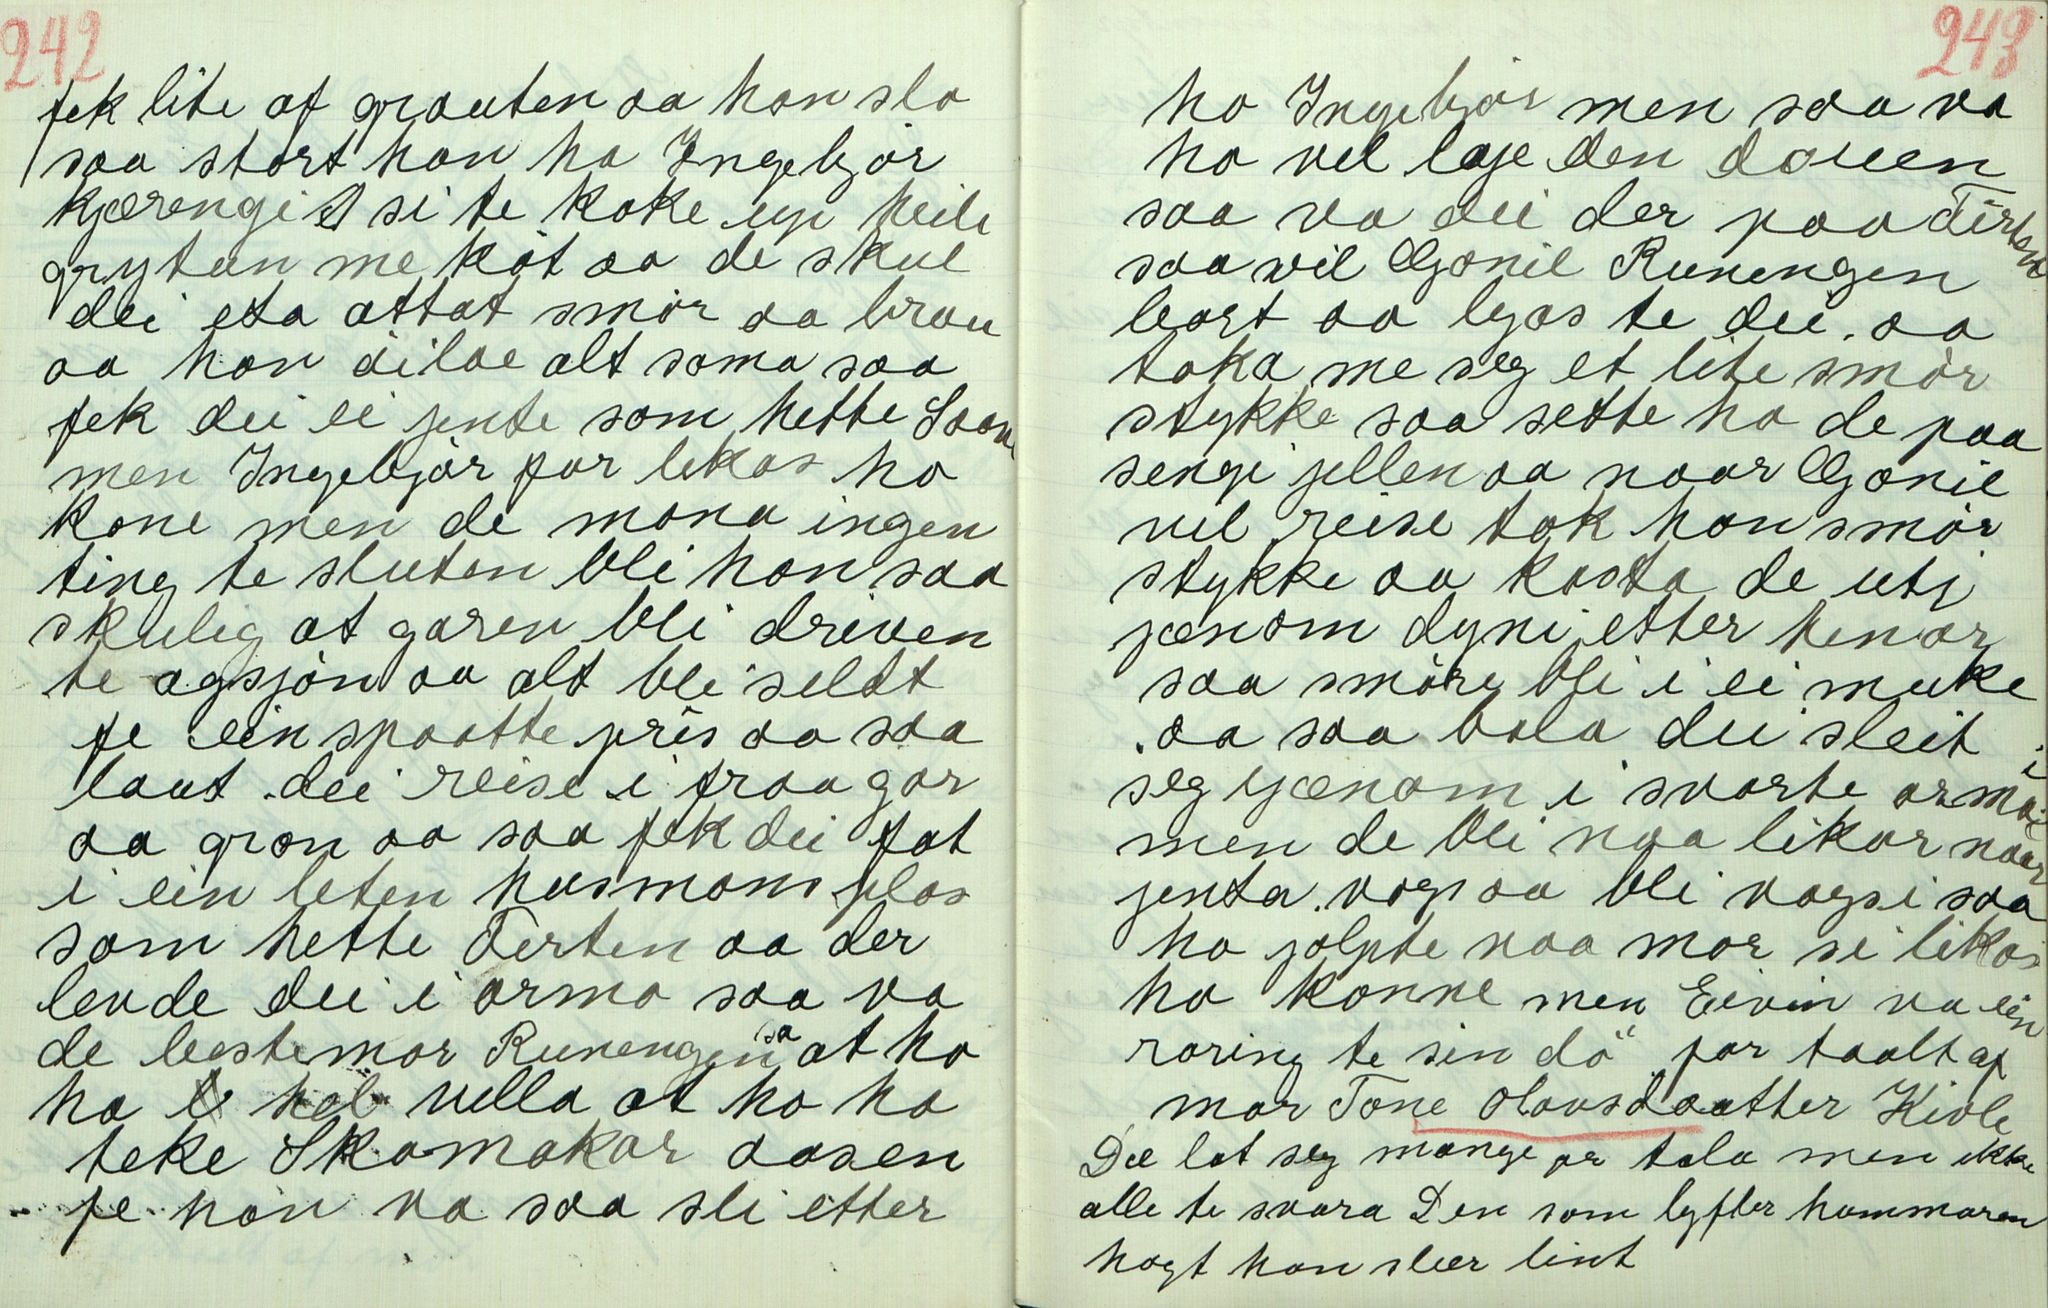 242
fek lite af grauten aa han slo
saa stort han ho Ingebjør
kjærengi si te koke up heile
gryten me køt aa de skul
dei eta attat smør aa brau
aa han øilae alt sama saa
fek dei ei jente som hette
men Ingebjør for likas ho
kone men de mona ingen
ting te sluten blei han saa
skulig at garen blei driven
te agsjon aa alt blei seldt
fe ein spaatte pris aa saa
laut dei reise i fraa gar
aa gron aa saa fek dei fat
i ein leten husmons plas
som hette Tirten aa der
levde dei i armo saa va
de bestemor Runengen sa at ho
ha hel vella at ho ha
teke Skomakar aasen
fe han va saa sli etter
243
ho Ingebjør men saa va
ho vel laje den douen
saa va dei der paa Tirten
saa vil Gonil Runengen
bort aa lyas te dei. aa
toka me seg et lite smør
stykke saa sette ho de paa
sengi jellen aa naar Gonil
vil reise tok han smør
stykke aa kasta de uti
jænom dyni etter henar
saa smøre blei i ei muke
aa saa bala dei sleit
seg jænom i svarte armoi
men de blei noa likar naar
jenta vogs aa blei vogsi saa
ho jolpte noa mor si likas
ho konne men Eivin va ein
raring te sin dø" far taalt af
mor Tone Olavsdaatter Kivle
Dee lot seg mange or tala men ikke
alle te svara Den som lyfter hammaren
hogt han sleer lint